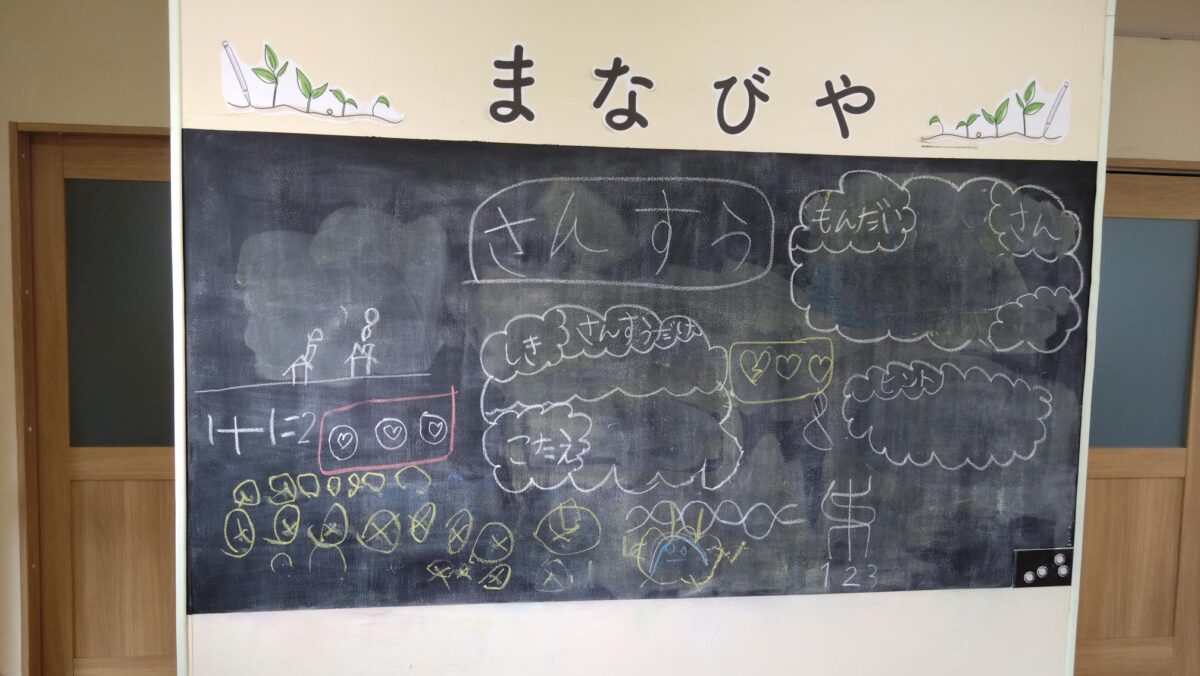 まなびや
さんすう
もんだい
さん
しき
さんすうだけ
ヒント
1+1=2
こたえ
8
1 2 3